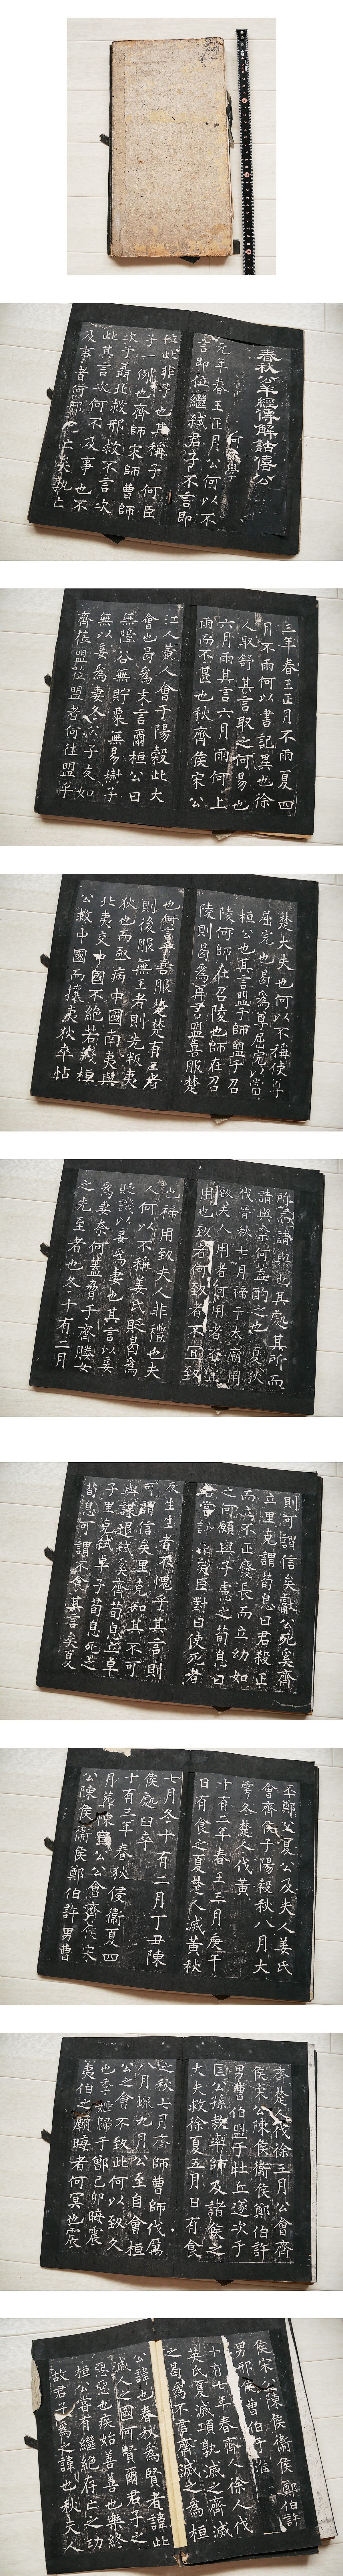 春秋公羊經傳解詁僖公
何休學
元年春王正月公何以不
言即位繼弒君子不言即
位此非子也其稱子何臣
子一例也齊師宋師曹師
次于聶北救邢救不言次
此其言次何不及事也不
及事者何邢已亡矣孰亡
三年春王正月不雨夏四
月不雨何以書記異也徐
人取舒其言取之何易也
六月雨其言六月雨何上
雨而不甚也秋齊侯宋公
江人黃人會于陽穀此大
會也曷為末言爾桓公曰
無障谷無貯粟無易樹子
無以妾為妻冬公子友如
齊莅盟莅盟者何往盟乎
楚大夫也何以不稱使尊
屈完也曷為尊屈完以當
桓公也其言盟于師盟于召
陵何師在召陵也師在召
陵則曷為再言盟喜服楚
也何言乎喜服楚楚有王者
則後服無王者則先叛夷
狄也而亟病中國南夷與
北夷交中國不絕若綫桓
公救中國而攘夷狄卒帖
所而請與也其處其所而
請與柰何蓋酌之也夏狄
伐晉秋七月禘于太廟用
致夫人用者何用者不宜
用也致者何致者不宜致
也禘用致夫人非禮也夫
人何以不稱姜氏貶曷為
貶譏以妾為妻也其言以妾
為妻奈何蓋脅于齊媵女
之先至者也冬十有二月
則可謂信矣獻公死奚齊
立里克謂荀息曰君殺正
而立不正廢長而立幼如
之何願與子慮之荀息曰
君嘗訊臣矣臣對曰使死者
反生生者不愧乎其言則
可謂信矣里克知其不可
與謀退弒奚齊荀息立卓
子里克弒卓子荀息死之
荀息可謂不食其言矣夏
丕鄭父夏公及夫人姜氏
會齊侯于陽穀秋八月大
雩冬楚人伐黃
十有二年春王三月庚午
日有食之夏楚人滅黃秋
七月冬十有二月丁丑陳
侯處臼卒
十有三年春狄侵衞夏四
月葬陳宣公公會齊侯宋
公陳侯衞侯鄭伯許男曹
齊楚人伐徐三月公會齊
侯宋公陳侯衞侯鄭伯許
男曹伯盟于牡丘遂次于
匡公孫敖率師及諸侯之
大夫救徐夏五月日有食
之秋七月齊師曹師伐厲
八月螽九月公至自會桓
公之會不致此何以致久
也季姬歸于鄫己卯晦震
夷伯之廟晦者何冥也震
侯宋公陳侯衞侯鄭伯許
男邢侯曹伯于淮
十有七年春齊人徐人伐
英氏夏滅項孰滅之齊滅
之曷為不言齊滅之為桓
公諱也春秋為賢者諱此
滅人之國何賢爾君子之
惡惡也疾始善善也樂終
桓公嘗有繼絕存亡之功
故君子為之諱也秋夫人